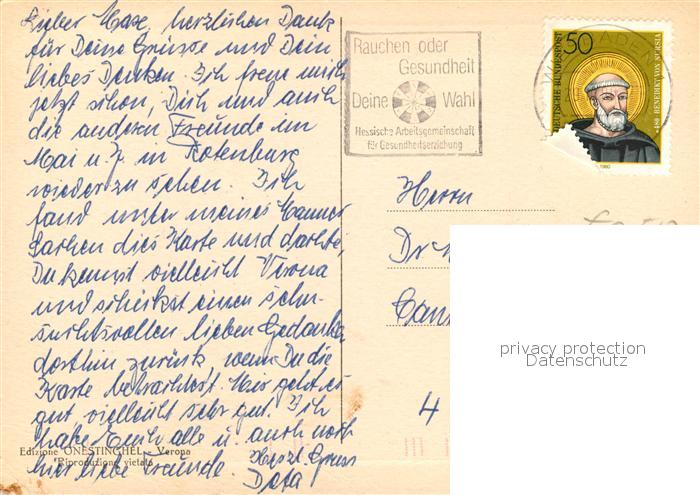 Lieber Max, herzlichen Dank
für Deine Grüsse und Dein
liebes Denken. Ich freue mich
jetzt schon, Dich und auch
die anderen Freunde im
Mai u. in Rotenburg
wieder zu sehen. Ich
fand unter meines
Sachen dies Karte und dachte,
Du kennst vielleicht Verona
und schickst einen sehn-
suchtsvollen lieben Gedanken
dorthin zurück, wenn Du die
Karte betrachtest. Mir geht es
gut vielleicht sehr gut. Ich
habe Euch alle u. auch noch
hier liebe Freunde. Herzl. Gruss
Edizione ONESTINGHEL - Verona
Riproduzione vietata
Rauchen oder
Gesundheit
Deine Wahl
Hessische Arbeitsgemeinschaft
für Gesundheitserziehung
50
DEUTSCHE BUNDESPOST
480 BENEDIKT VON NURSIA
1980
Herrn
Dr.
4
privacy protection
Datenschutz